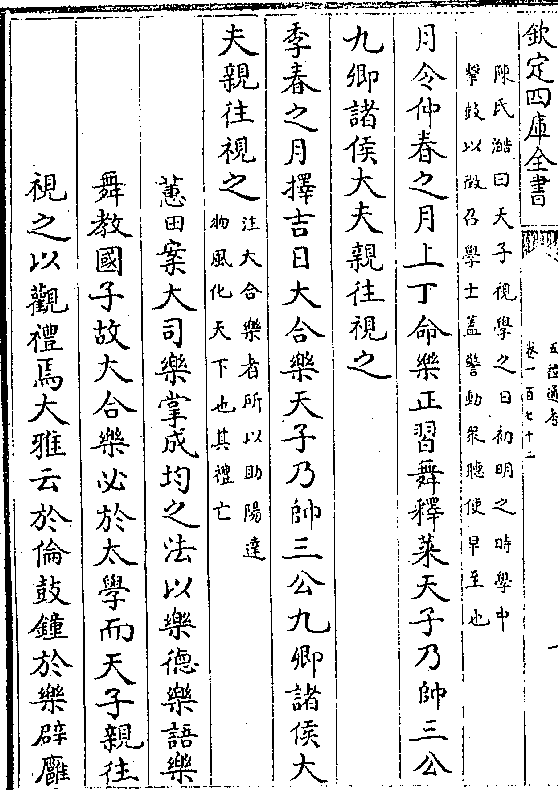 欽定四庫全書
五禮通考
卷一百七十二
一
陳氏澔曰天子視學之日初明之時學中
擊鼓以徴召學士蓋警動衆聽使早至也
月令仲春之月上丁命樂正習舞釋菜天子乃帥三公
九卿諸侯大夫親往視之
季春之月擇吉日大合樂天子乃帥三公九卿諸侯大
夫親往視之
注大合樂者所以助陽達
物風化天下也其禮亡
蕙田案大司樂掌成均之法以樂德樂語樂
舞教國子故大合樂必於太學而天子親往
視之以觀禮焉大雅云於倫鼓鐘於樂辟廱